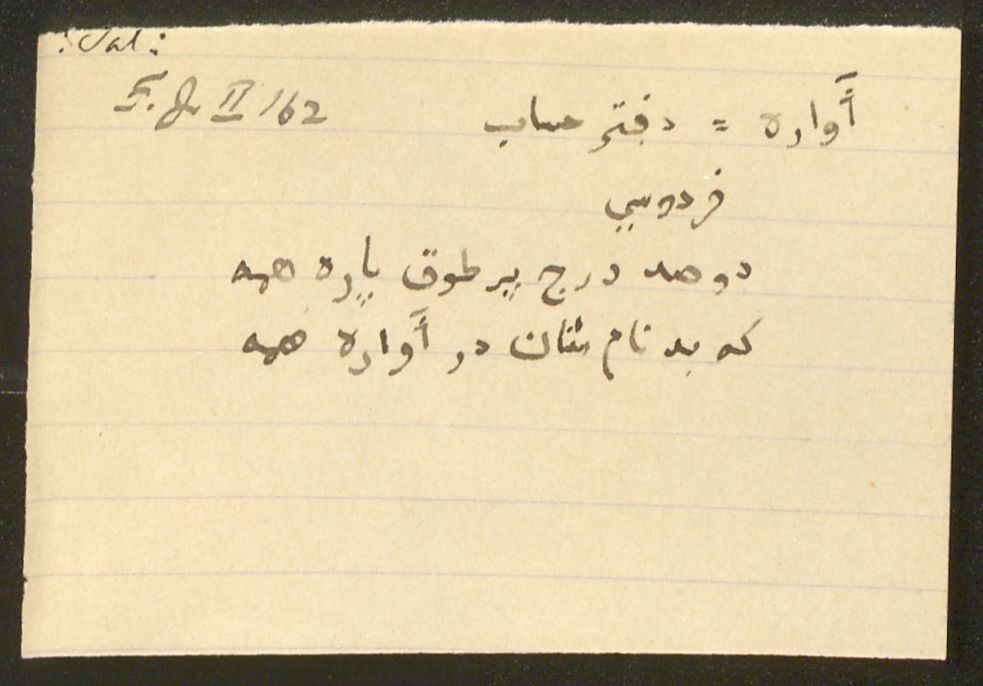 : Sal :
F. J. II 162
أواره = دفتر حساب
فردوسي
دو صد درج پر طوق ياره همه
که بد نام شان در أواره همه